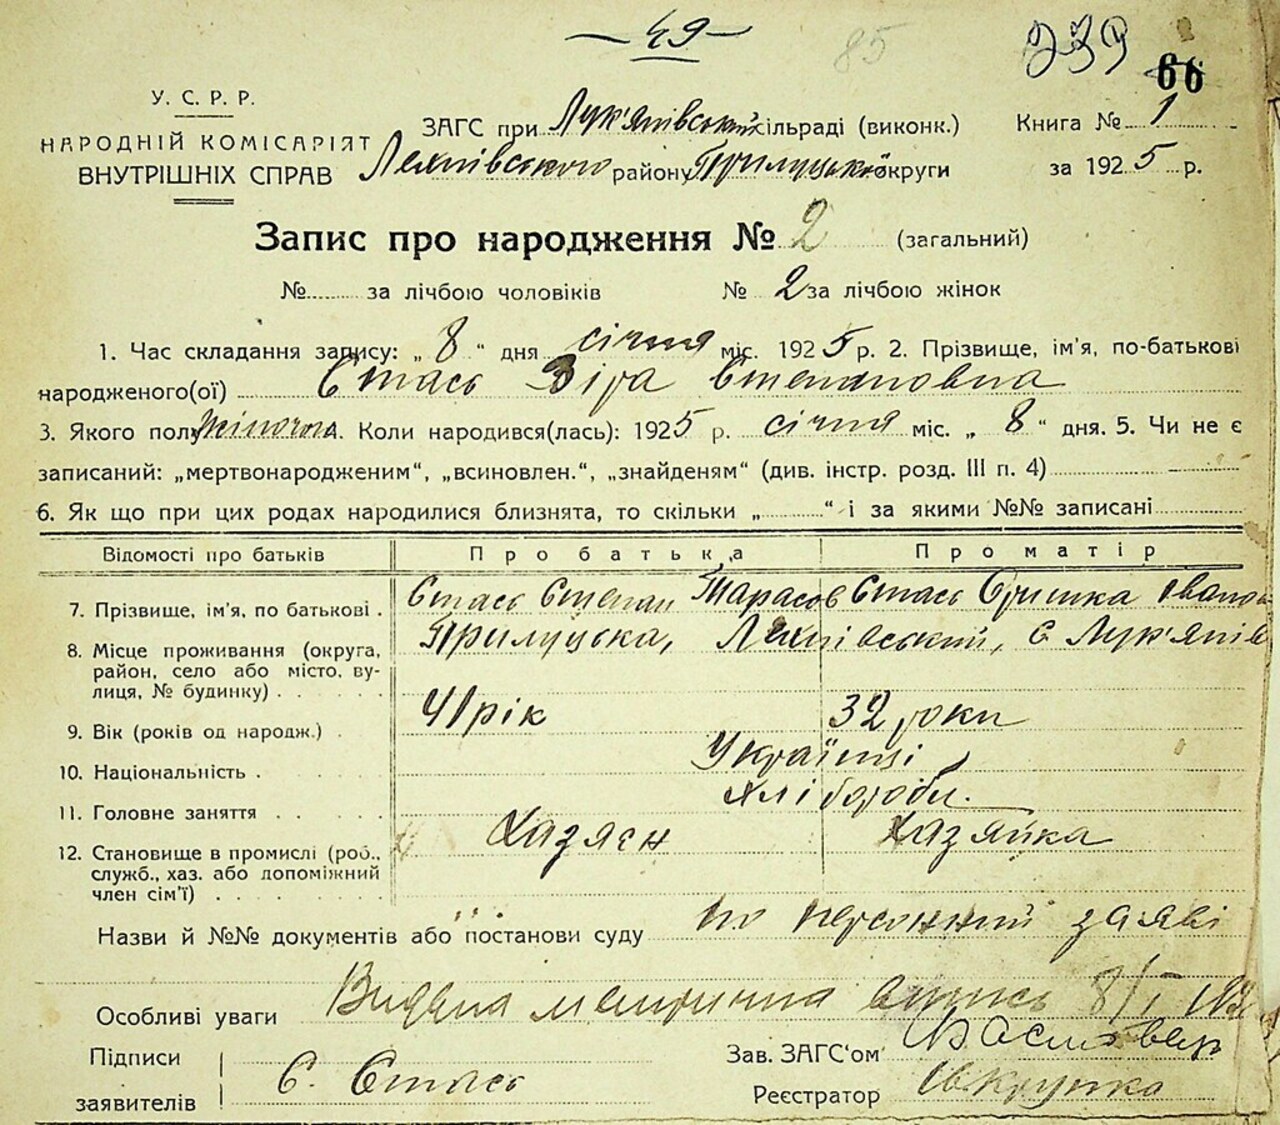 — 49 —
85
239
66
У. С. Р. Р.
НАРОДНІЙ КОМІСАРІЯТ
ВНУТРІШНІХ СПРАВ
ЗАГС при Лук'янівській сільраді (виконк.)
Книга № 1
району Прилуцької округи
за 1925 р.
Запис про народження № 2 (загальний)
№ за лічбою чоловіків № 2 за лічбою жінок
1. Час складання запису: „ 8 “ дня січня міс. 1925 р. 2. Прізвище, ім'я, по-батькові
народженого(ої) Стась Віра Степановна
3. Якого полу жіночого 4. Коли народився(лась): 1925 р. січня міс. „ 8 “ дня. 5. Чи не є
записаний: „мертвонародженим“, „всиновлен.“, „знайденям“ (див. інстр. розд. III п. 4)
6. Як що при цих родах народилися близнята, то скільки „ “ і за якими №№ записані
Відомості про батьків Про батька Про матір
7. Прізвище, ім'я, по батькові . Стась Степан Тарасов Стась Оришка Іванов
8. Місце проживання (округа, район, село або місто, вулиця, № будинку) Прилуцька, с. Лук'янів
9. Вік (років од народж.) . 41 рік 32 роки
10. Національність . Українці
11. Головне заняття Хлібороби.
12. Становище в промислі (роб., служб., хаз. або допоміжний член сім'ї) Хазяєн Хазяйка
Назви й №№ документів або постанови суду по персонний заяві
Особливі уваги Видана метрична випись 8/I 192
Підписи
заявителів С. Стась
Зав. ЗАГС'ом
Реєстратор